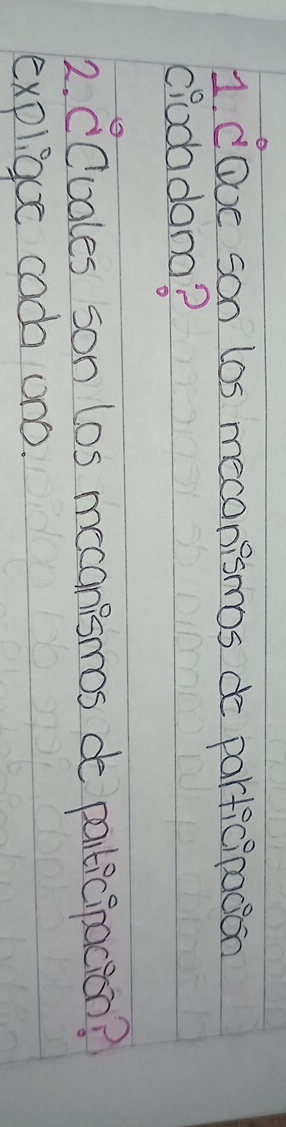 1. ¿Que son los mecanismos de participación
ciudadana?
2. ¿Cuales son los mecanismos de participación?
explique cada uno.